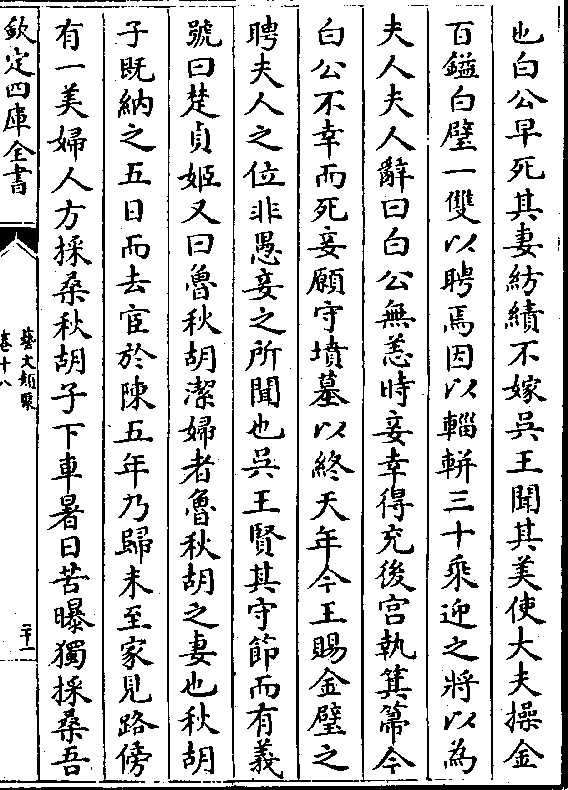 也白公早死其妻紡績不嫁吳王聞其美使大夫操金
百鎰白璧一雙以聘焉因以輜軿三十乘迎之將以為
夫人夫人辭曰白公無恙時妾幸得充後宮執箕箒今
白公不幸而死妾願守墳墓以終天年今王賜金璧之
聘夫人之位非愚妾之所聞也吳王賢其守節而有義
號曰楚貞姬又曰魯秋胡潔婦者魯秋胡之妻也秋胡
子既納之五日而去宦於陳五年乃歸未至家見路傍
有一美婦人方採桑秋胡子下車暑日苦曝獨採桑吾
欽定四庫全書
藝文類聚
卷十八
二十一